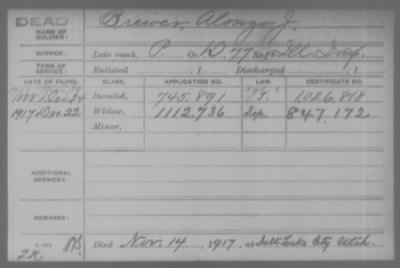 DEAD
NAME OF SOLDIER: Brewer, Alonzo J.
SERVICE: Late rank, P. Co. D, 77 Reg't Ill. Inf.
TERM OF SERVICE: Enlisted , 1 Discharged , 1
DATE OF FILING. CLASS. APPLICATION NO. LAW. CERTIFICATE NO.
Dec. 24 Invalid, 745.891 1026.818
1917 Dec. 22 Widow, 1112.736 Sep. 847.172
Minor,
ADDITIONAL SERVICES:
REMARKS:
Died Nov. 14, 1917, at Salt Lake City Utah.